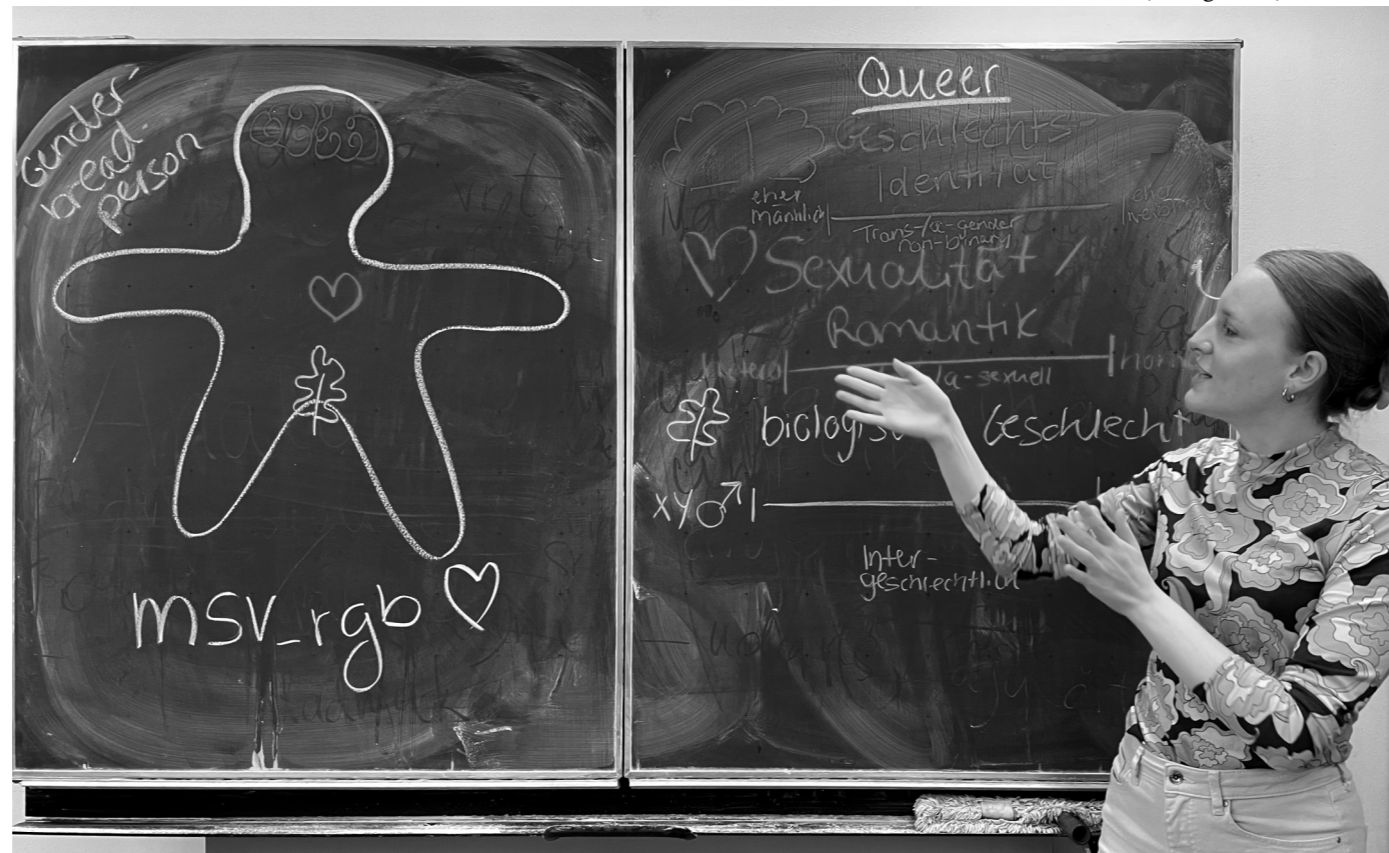 Gender-
bread-
person
msv_rgb
Queer
Geschlechts-
Identität
eher
männlich
eher
Trans-/a-gender
non-binary
Sexualität /
Romantik
/a-sexuell
Geschlecht
xy♂
Inter-
geschlechtlich